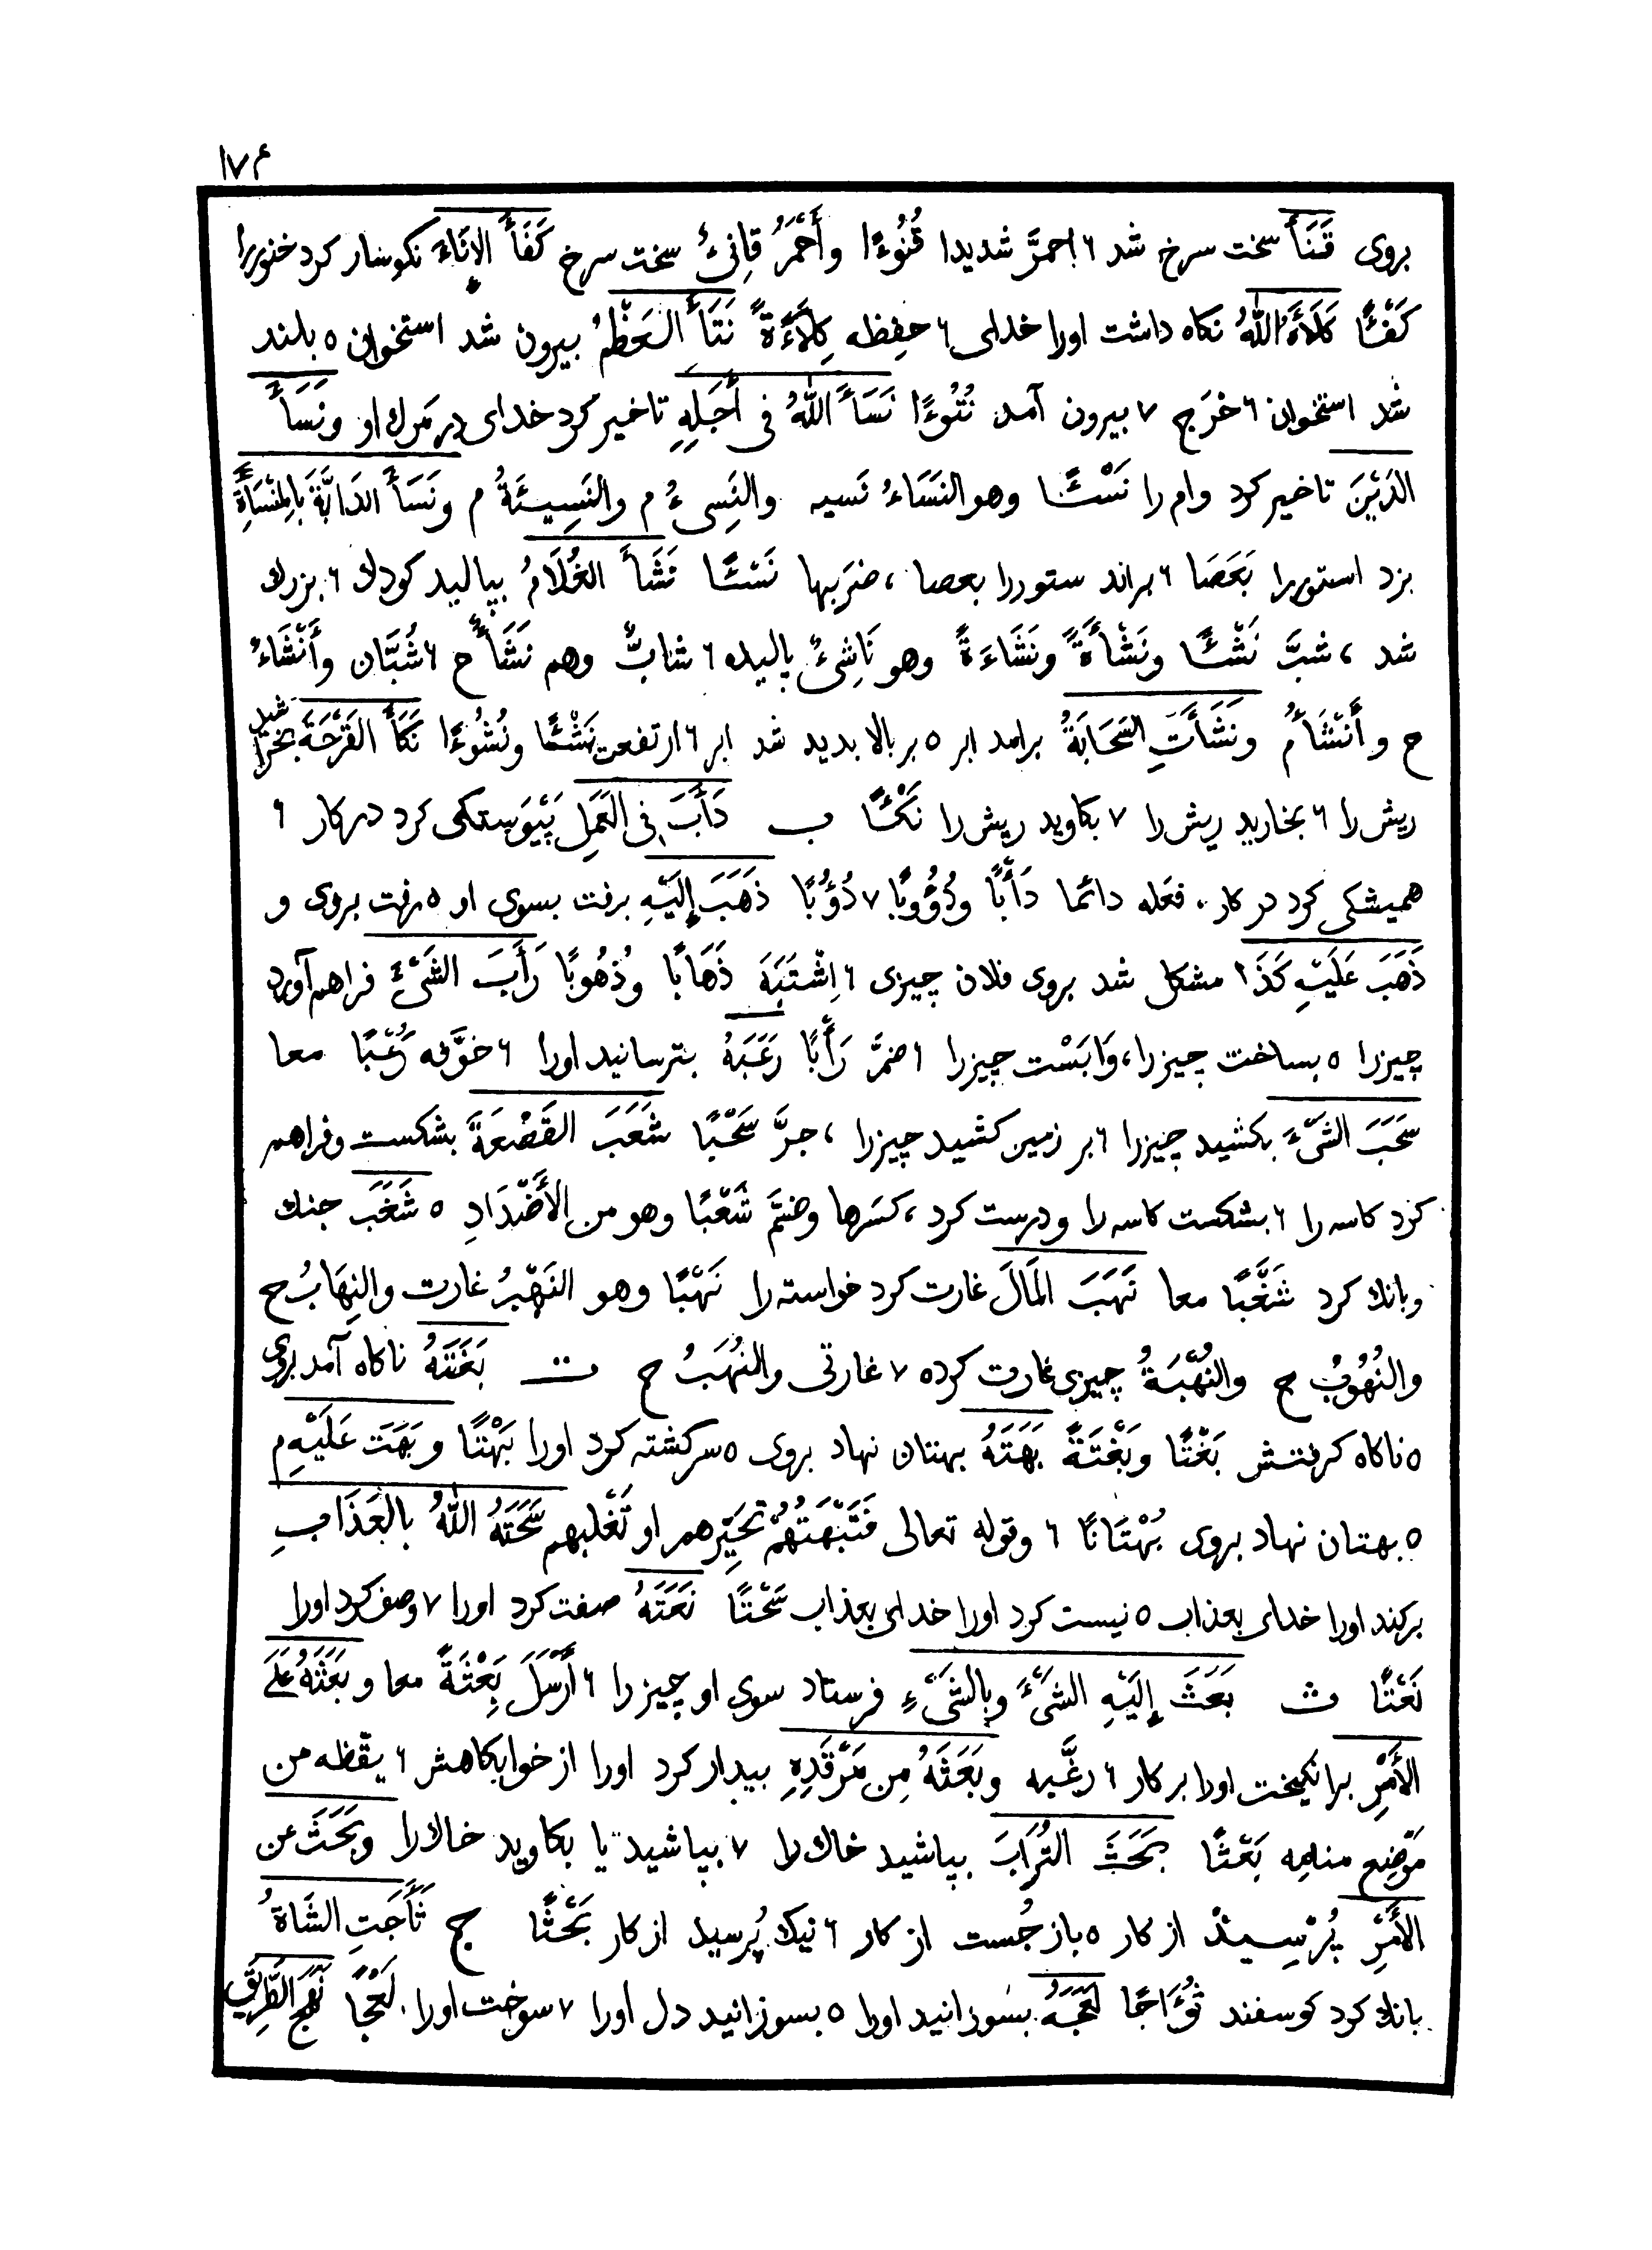 ١٧٤
بروى قَنَأَ سخت سرخ شد ٦ احمرَّ شديدا قُنُوءًا وأَحْمَرُ قانِئٌ سخت سرخ كَفَأَ الإِنَاءَ نكوسار كرد خنوررا
كَفْئًا كَلَأَهُ اللهُ نكاه داشت اورا خداى ٦ حفِظه كِلَاءَةً نَتَأَ العَظْمُ بيرون شد استخوان ٥ بلند
شد استخوان ٦ خرَج ٧ بيرون آمد نُتُوءًا نَسَأَ اللهُ فى أَجَلِهِ تاخير كرد خداى در مَرك او ونَسَأَ
الدَيْنَ تاخير كرد وام را نَسْئًا وهو النَسَاءُ نَسيه والنَسِىءُ م والنَسِيئَةُ م ونَسَأَ الدَابَّةَ بِالمِنْسَأَةِ
بزد استوررا بَعَصَا ٦ براند ستوررا بعصا ، ضرَبها نَسْئًا نَشَأَ الغُلَامُ بباليد كودك ٦ بزرك
شد ، شبَّ نَشْئًا ونَشْأَةً ونَشَاءَةً وهو نَاشِئٌ باليده ٦ شابٌّ وهم نَشَأٌ ح ٦ شُبَّان وأَنْشَاءُ
ح و أَنْشَأُمُ ونَشَأَتِ السَحَابَةُ برامد ابر ٥ بر بالا بديد شد ابر ٦ ارتفعت نَشْئًا ونُشُوءًا نَكَأَ القَرْحَةَ بخراشيد
ريش را ٦ بخاريد ريش را ٧ بكاويد ريش را نَكْئًا ب دَأَبَ فى العَمَلِ پَيْوَستكى كرد در كار ٦
هميشكى كرد در كار ، فعَله دائما دَأْبًا ودُؤُوبًا ٧ دُؤُبًا ذَهَبَ إِلَيْهِ برفت بسوى او ٥ رفت بروى و
ذَهَبَ عَلَيْهِ كَذَا مشكل شد بروى فلان چيزى ٦ اِشْتَبَهَ ذَهَابًا وُذهُوبًا رَأَبَ الشَىْءَ فراهم آورد
چيزرا ٥ بساخت چيزرا ، وَابَسْت چيزرا ٦ ضمَّ رَأْبًا رَعَبَهُ بترسانيد اورا ٦ خوَّفه رُعْبًا معا
سَحَبَ الشَىْءَ بكشيد چيزرا ٦ بر زمين كشيد چيزرا ، جرَّ سَحْبًا شَعَبَ القَصْعَةَ بشكست وفراهم
كرد كاسه را ٦ بشكست كاسه را ودرست كرد ، كسَرها وضمَّ شَعْبًا وهو من الأَضْدَادِ ٥ شَغَبَ جنك
وبانك كرد شَغْبًا معا نَهَبَ المَالَ غارت كرد خواسته را نَهْبًا وهو النَهْبُ غارت والنِهَابُ ح
والنُهُوبُ ح والنُهْبَةُ چيزى غارت كرده ٧ غارتى والنُهَبُ ح ت بَغَتَهُ ناكاه آمد بروى
٥ ناكاه كرفتش بَغْتًا وبَغْتَةً بَهَتَهُ بهتان نهاد بروى ٥ سركشته كرد اورا بَهْتًا وبَهَتَ عَلَيْهِ م
٥ بهتان نهاد بروى بُهْتَانًا ٦ وقوله تعالى فَتَبْهَتُهُمْ تحَيِّرهم او تَغْلبهم سَحَتَهُ اللهُ بالعَذَابِ
بركند اورا خداى بعذاب ٥ نيست كرد اورا خداى بعذاب سَحْتًا نَعَتَهُ صفت كرد اورا ٧ وصف كرد اورا
نَعْتًا ث بَعَثَ إِلَيْهِ الشَىْءَ وبِالشَىْءِ فرستاد سوى او چيزرا ٦ أَرْسَلَ بِعْثَةً معا وبَعَثَهُ عَلَى
الأَمْرِ برانكيخت اورا بر كار ٦ رغَّبه وبَعَثَهُ مِن مَرْقَدِهِ بيدار كرد اورا از خوابكاهش ٦ يقَّظه من
مَوْضِع منامِه بَعْثًا بَحَثَ التُرَابَ بپاشيد خاك را ٧ بپاشيد يا بكاويد خاك را وبَحَثَ عن
الأَمْرِ پُرْسِيدْ از كار ٥ باز جُست از كار ٦ نيك پُرسيد از كار بَحْثًا ج ثَأَجَتِ الشَاةُ
بانك كرد كوسفند ثُؤَاجًا لَعَجَهُ بسوزانيد اورا ٥ بسوزانيد دل اورا ٧ سوخت اورا . لَعْجًا نَهَجَ الطَرِيقَ